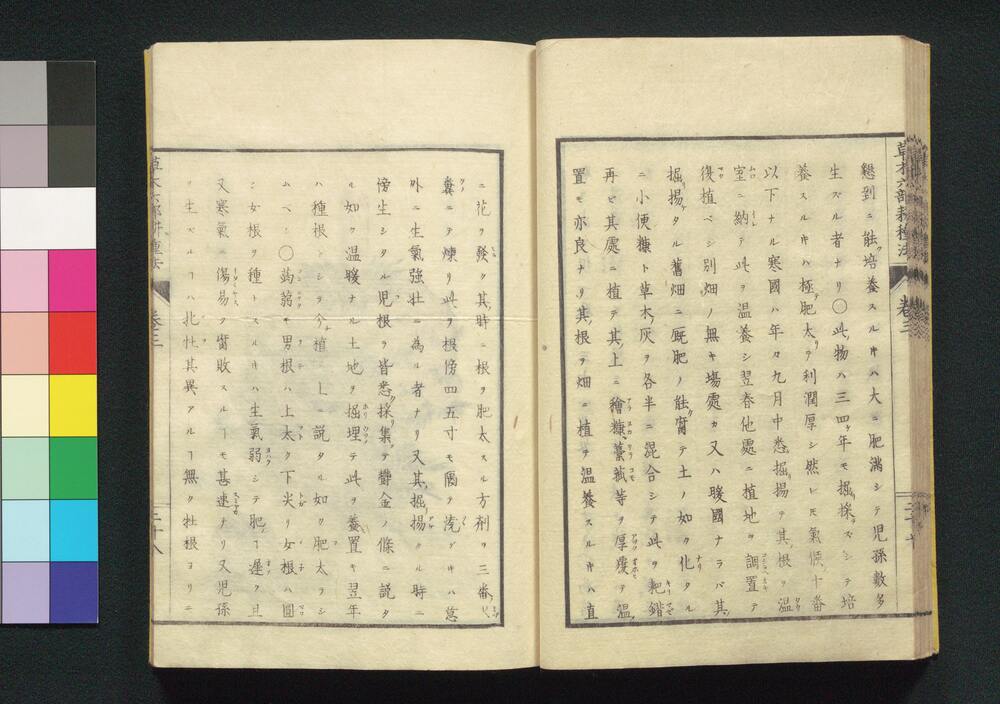 草木六部耕種法 卷三
懇到ニ能培養スルキハ大ニ肥滿シテ児孫數多
生ズル者ナリ〇此物ハ三四年モ掘採ズシテ培
養スルキハ極肥太リテ利潤厚シ然ヒモ氣候十番
以下ナル寒國ハ年々九月中悉掘揚テ其根ヲ温
室ニ納テ此ヲ温養シ翌春他處ニ植地ヲ調置テ
復植ベシ別畑ノ無キ場處カ又ハ暖國ナラバ其
掘揚タル舊畑ニ厩肥ノ能腐テ土ノ如ク化タル
ニ小便糠ト草木灰ヲ各半ニ混合シテ此ヲ耙鍇
再ビ其處ニ植テ其上ニ穭糠、藁菰等ヲ厚覆テ温
置モ亦良ナリ其根ヲ畑ニ植テ温養スルキハ直
ニ花ヲ發ク其時ニ根ヲ肥太スル方剤ヲ三番
糞ニテ煉リ此ヲ根傍四五寸モ隔テ澆グキハ意
外ニ生氣強壮ニ為ル者ナリ又其掘揚クル時ニ
傍生シタル児根ヲ皆悉採集テ鬱金ノ條ニ説タ
ル如ク温暖ナル土地ヲ掘埋テ此ヲ養置キ翌年
ハ種根トシヲ今植
ムベシ〇蒟蒻モ男根ハ上太ク下尖リ女根ハ圓
シ女根ヲ種トスルキハ生氣弱シテ肥ヿ遲ク且
又寒氣ニ傷易ク腐敗スルヿモ甚速ナリ又児孫
ヲ生ズルヿハ北牡其異アルヿ無ク牡根ヨリニ
草木六部耕種法 卷三 二十八